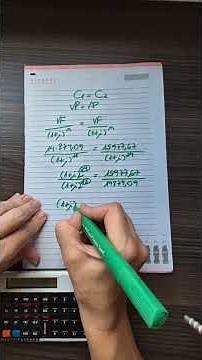 C1 = C2
VP = VP
VF/(1+j)^n = VF/(1+j)^n
14.879,09/(1+j)^18 = 15977,67/(1+j)^24
(1+j)^24/(1+j)^18 = 15977,67/14879,09
(1+j)